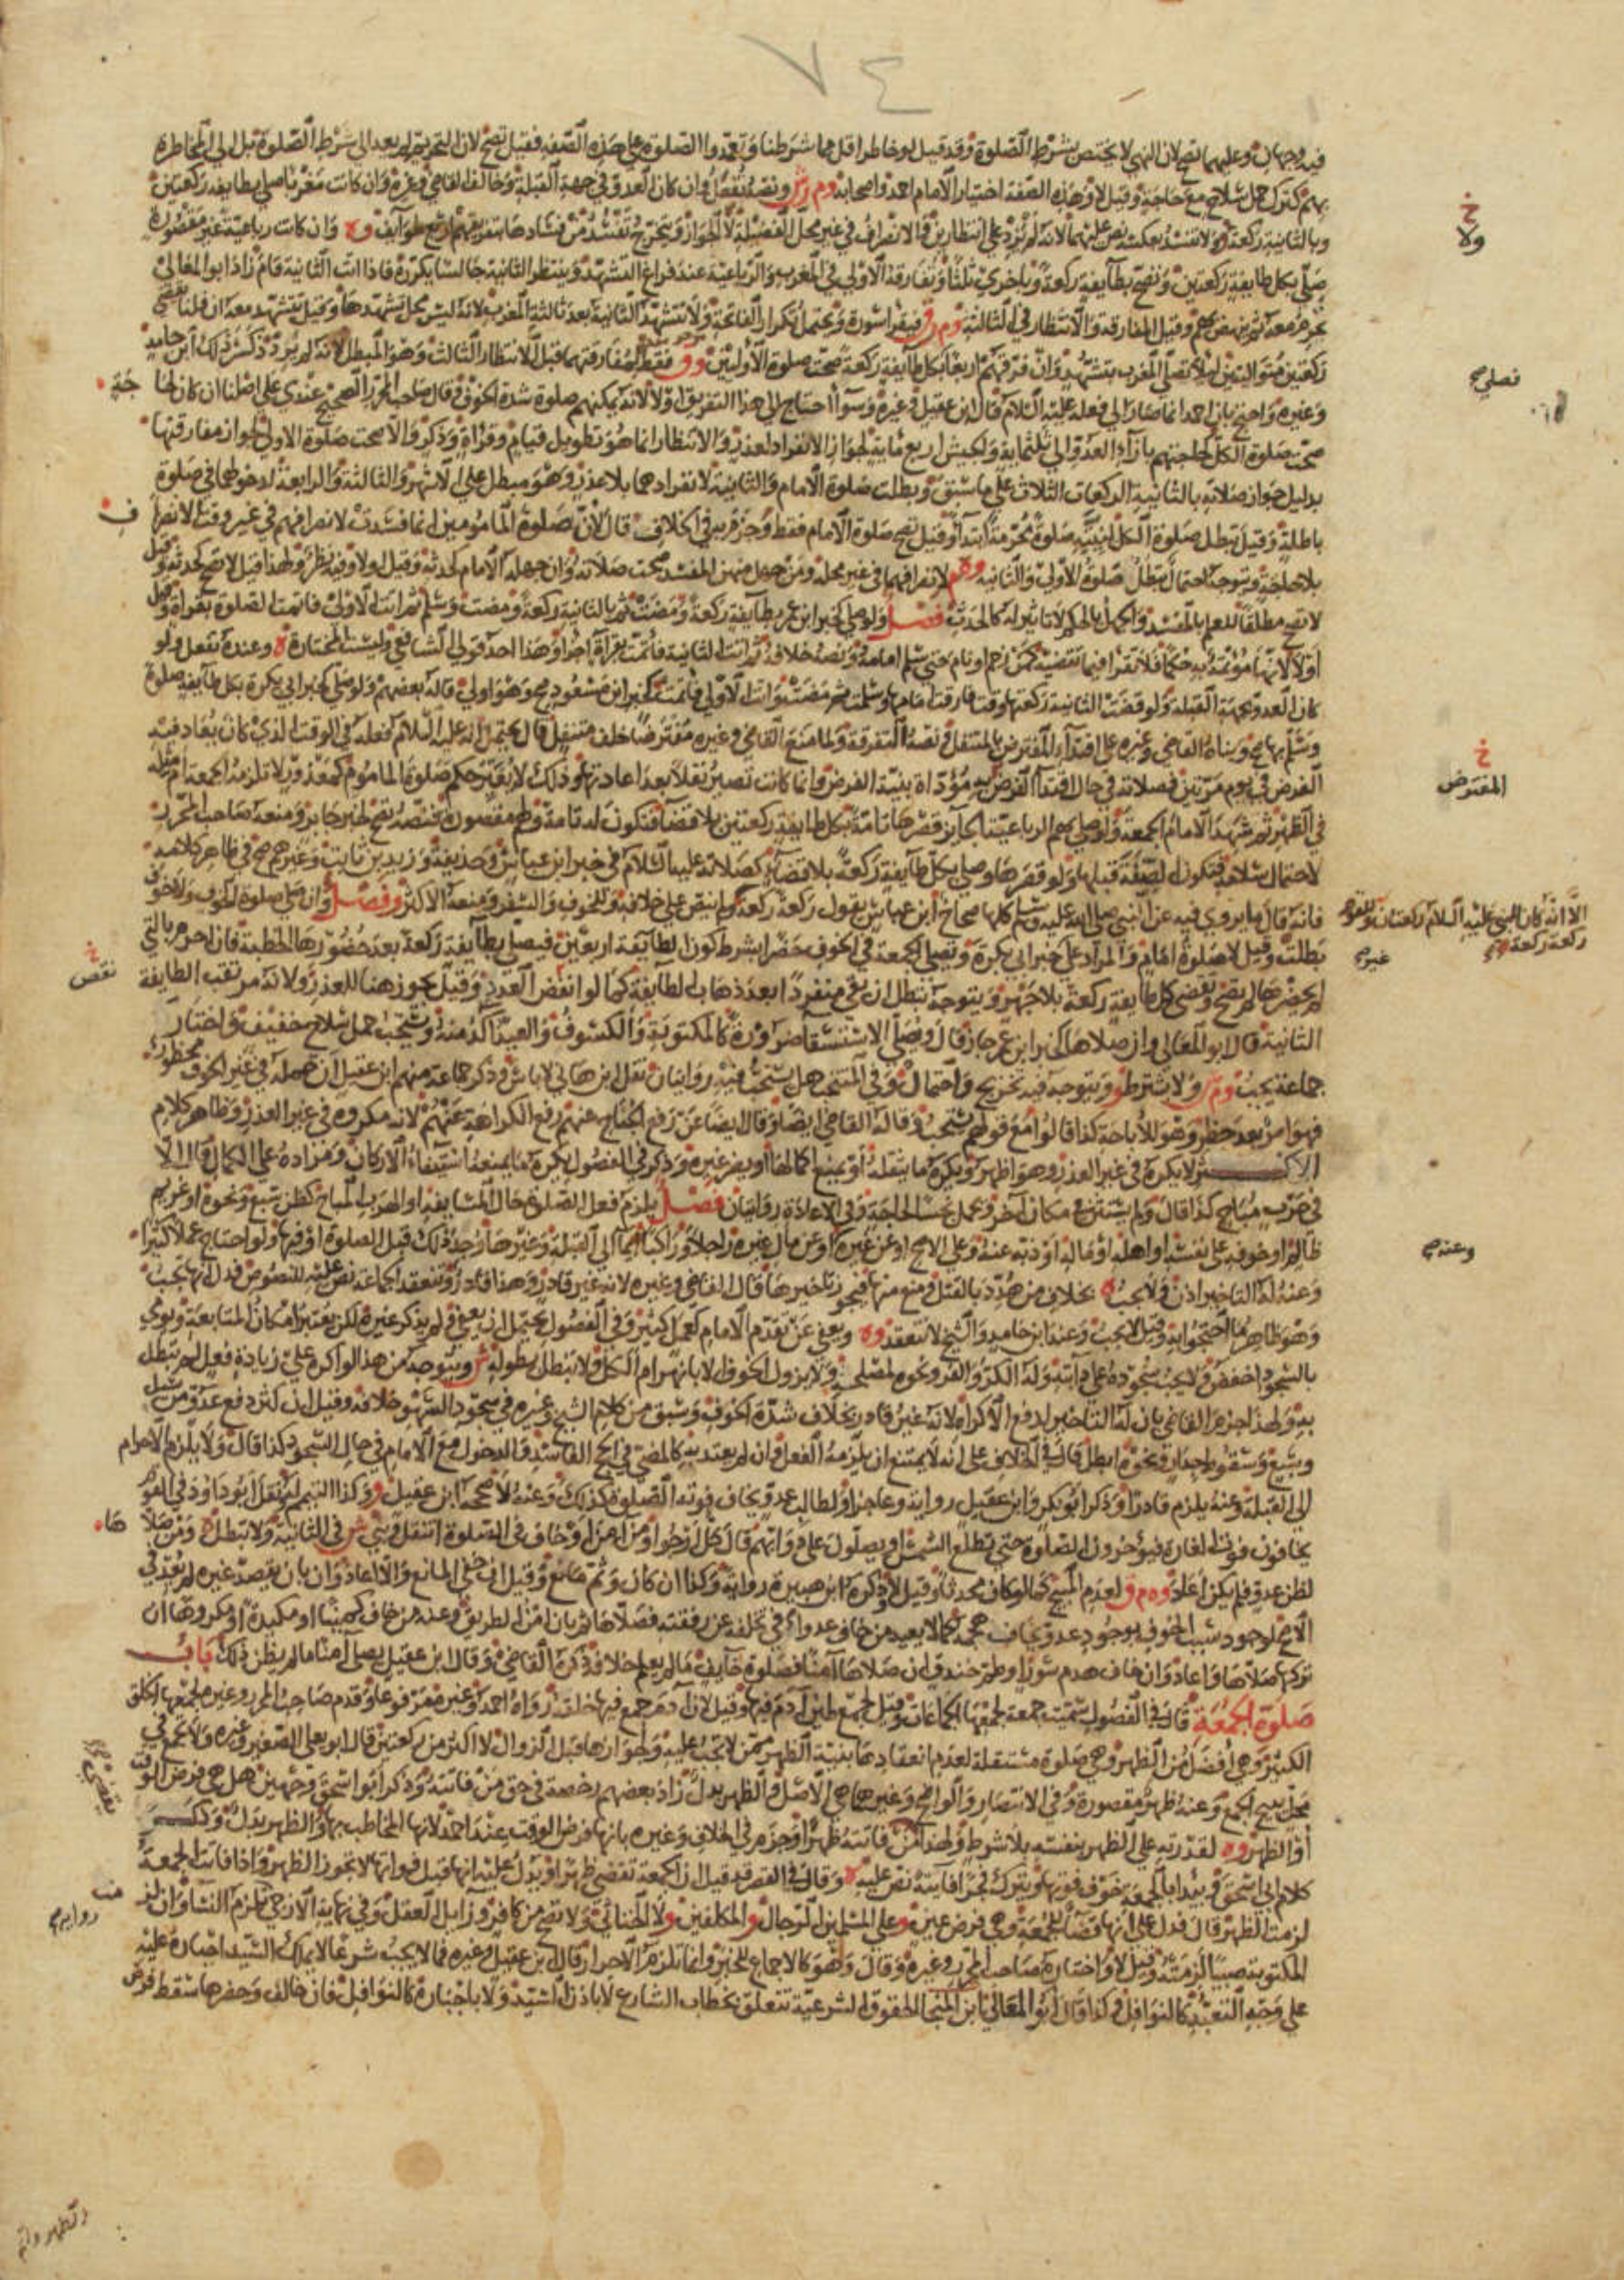 ٧٤
فيه وجهان وعليهما تصح لان النهي لا يختص بشرط الصلوة وقد قيل لو خاطر اقل مما شرطنا وتعمدوا الصلوة على هذه الصفة فقيل تصح لان التحريم لم يعد الى شرط الصلوة بل الى المخاطرة
بهم كترك حمل سلاح مع حاجة وقيل لا وهذه الصفة اختيار الامام احمد واصحابه وم ر ش ونصه تفعل وان كان العدو في جهة القبلة وخالف القاضي وغيره وان كانت مغربا صلى بطايفة ركعتين
وبالثانية ركعة ولا تفسد بعكسه نص عليهما لانه لم يزد على انتظارين
صلى بكل طايفة ركعتين وتصح بطايفة ركعة وباخرى ثلثا وتفارقه الاولى في المغرب والرباعية عند فراغ التشهد وينتظر الثانية جالسا يكرره فاذا اتت الثانية قام زاد ابو المعالي
وقيل المفارقة والانتظار في الثالثة وم ق فيقرا سورة ويحتمل تكرار الفاتحة ولا تتشهد الثانية بعد ثالثة المغرب لانه ليس محل تشهدها وقيل تتشهد معه ان قلنا تقضي
ركعتين متواليتين لئلا تصلي المغرب بتشهد وان فرقهم اربعا بكل طايفة ركعة صحت صلوة الاوليين وق فقط لمفارقتهما قبل الانتظار الثالث وهو المبطل لانه لم يرد ذكره ذلك ابن حامد
وغيره واحتج بان احمد انما صار الى فعله عليه السلام قال ابن عقيل وغيره وسواء احتاج الى هذا التفريق او لا لانه يمكنهم صلوة شدة الخوف وقال صاحب المحرر الصحيح عندي على اصلنا ان كان لحا جة
صحت صلوة الكل لحاجتهم بازاء العدو الى ثلثماية والجيش اربع ماية لجواز الانفراد لعذر والانتظار انما هو تطويل قيام وقراة وذكر والا صحت صلوة الاولى لجواز مفارقتها
بدليل جواز صلاته بالثانية الركعات الثلاث على ما سبق وبطلت صلوة الامام والثانية لانفرادهما بلا عذر وهو مبطل على الاشهر والثالثة والرابعة لدخولهما في صلوة
باطلة وقيل تبطل صلوة الكل لنيته صلوة محرمة ابتدا وقيل تصح صلوة الامام فقط وجزم به في الخلاف قال لان صلوة المامومين انما فسدت لانصرافهم في غير وقت الانصرا ف
بلا حاجة ويتوجه احتمال تبطل صلوة الاولى والثانية وم لانصرافهما في غير محله ومن جهل منهن المفسد صحت صلاته وان جهله الامام كحدثه وقيل اولا وفيه نظر ولهذا قيل لا تصح كحدثه وقيل
لا تصح مطلقا للعلم بالمفسد والجهل بالحكم لا تاثير له كالحدث فصل ولو صلى كخبر ابن عمر بطايفة ركعة ومضت ثم بالثانية ركعة ومضت وسلم ثم اتت الاولى فاتمت الصلوة بقراة وقيل
اولا لانها مؤتمة به حكما فلا تقرا فيما تقضيه كمن زحم او نام حتى سلم امامه ونصه خلافه ثم اتت الثانية فاتمت بقراة اجزا وهذا احد قولي الشافعي وليست المختارة ه وعنده تفعل ولو
كان العدو بجهة القبلة ولو قضت الثانية ركعتها وقت فارقت امامها وسلمت ثم مضت واتت الاولى فاتمت كخبر ابن مسعود صح وهو اولى قاله بعضهم ولو صلى كخبر ابي بكرة بكل طايفة صلوة
وسلم بها صح وبناه القاضي وغيره على اقتداء المفترض بالمتنفل ونصه التفرقة ولما منع القاضي وغيره مفترضا خلف متنفل قال يحتمل انه عليه السلام فعله في الوقت الذي كان يعاد فيه
الفرض في يوم مرتين فصلاته في حال اقتداء الفرض به مؤداة بنية الفرض وانما كانت تصير نفلا بعد اعادتها وذلك لا يغير حكم صلوة الماموم كمعذور لا تلزمه الجمعة ام مثله
في الظهر ثم شهد الامام الجمعة ولو صلى بهم الرباعية الجائز قصرها تامة بكل طايفة ركعتين بلا قضا فتكون له تامة ولهم مقصورة فنصه تصح لخبر جابر ومنعه صاحب المحرر
لاحتمال سلامه فتكون الصفة قبلها ولو قصرها وصلى بكل طايفة ركعة بلا قضاء كصلاته عليه السلام في خبر ابن عباس وحذيفة وزيد بن ثابت وغيرهم صح في ظاهر كلامه
فانه قال ما يروى فيه عن النبي صلى الله عليه وسلم كلها صحاح ابن عباس يقول ركعة ركعة ولم ينص على خلافه وللخوف والسفر ومنعه الاكثر و فصل وان صلى صلوة الخوف ولا خوف
بطلت وقيل لا صلوة امام والمراد على خبر ابي بكرة وتصلى الجمعة في الخوف حضرا بشرط كون الطايفة اربعين فيصلي بطايفة ركعة بعد حضورها الخطبة فان احرم بالتي
لم يحضرها لم تصح وتقضي كل طايفة ركعة بلا جهر ويتوجه تبطل ان بقي منفردا بعد ذهاب الطايفة كما لو انقض العدد وقيل يجوز هنا للعذر ولانه مرتقب الطايفة
الثانية قال ابو المعالي وان صلاها كخبر ابن عمر جاز قال ويصلى الاستسقا ضرورة كالمكتوبة والكسوف والعيد آكد منه ويستحب حمل سلاح خفيف واختار
جماعة يجب وم ر ولا يشترط و ويتوجه فيه تخريج واحتمال وفي المنتخب هل يستحب فيه روايتان نقل ابن هاني لا باس وذكر جماعة منهم ابن عقيل ان حمله في غير الخوف محظور
فهو امر بعد حظر وهو للاباحة كذا قالوا مع قولهم يستحب وقاله القاضي ايضا وقال ايضا عن رفع الجناح عنهم رفع الكراهة عنهم لانه مكروه في غير العذر وظاهر كلام
الاكثر لا يكره في غير العذر وهو اظهر ويكره ما يثقله او يمنع اكمالها او يضر غيره وذكر في الفصول يكره ما يمنعه استيفاء الاركان ومراده على الكمال قال الا
في حرب مباح كذا قال ولم يستثن في مكان آخر وحمل نجس لحاجة وفي الاعادة روايتان فصل يلزم فعل الصلوة حال المسايفة او الهرب المباح كظن سبع ونحوه او غريم
ظالم او خوفه على نفسه او اهله او ماله او ذبه عنه وعلى الاصح او عن غيره او عن مال غيره راجلا وراكبا ايماء الى القبلة وغيرها وجد ذلك قبل الصلوة او فيها ولو احتاج عملا كثيرا
وعنه له التاخير اذن ولا يجب ه بخلاف من هدد بالقتل ومنع منها فيجوز تاخيرها قال القاضي وغيره لانه غير قادر وهذا قادر وتنعقد الجماعة نص عليه للنصوص فدل انها تجب
وهو ظاهر ما احتجوا به وقيل لا يجب وعند ابن حامد والشيخ لا تنعقد وه ويعفى عن تقدم الامام كعمل كثير وفي الفصول يحتمل ان يعفى ولم يذكر غيره لكن يعتبر امكان المتابعة ويومي
بالسجود اخفض ولا يجب سجوده على دابته وله الكر والفر ونحوه لمصلحة ولا يزول الخوف الا بانهزام الكل ولا تبطل بطوله ش ويتوجه من هذا لو اكره على زيادة فعل لم تبطل
به ولهذا اجزم القاضي بان له التاخير لدفع الاكراه لانه غير قادر بخلاف شدة الخوف وسبق من كلام الشيخ وغيره في سجود السهو خلافه وقيل ان كثر دفع عدو من سيل
وسبع وسقوط جدار ونحوه ابطل قال في الخلاف على انه لا يمتنع ان يلزمه الفعل وان لم يعتد به كالمضي في الحج الفاسد والدخول مع الامام في حال السجود كذا قال ولا يلزم الاحرام
الى القبلة وعنه يلزم قادرا وذكر ابو بكر وابن عقيل رواية وعاجزا ولطالب عدو يخاف فوته الصلوة كذلك وعنه لا صححه ابن عقيل وق وكذا التيمم له ونقل ابو داود في القوم
يخافون فوت الغارة فيؤخرون الصلوة حتى تطلع الشمس او يصلون على دوابهم قال كل ارجو ومن امن او خاف في الصلوة انتقل وبنى ش في الثانية ولا تبطل ومن صلا ها
لظن عدو فلم يكن اعاد وه م ق لعدم المبيح كما لو كان محدثا وقيل لا وذكره ابن هبيرة رواية وكذا ان كان وثم مانع وقيل ان خفي المانع والا اعاد وان بان يقصد غيره لم يعد في
الاصح لوجود سبب الخوف بوجود عدو يخاف هجمه كما لا يعيد من خاف عدوا في تخلفه عن رفقته فصلاها ثم بان امن الطريق وعنه من خاف كمينا او مكيدة او مكروها ان
تركها صلاها واعاد وان خاف هدم سور او طم خندق ان صلاها آمنا فصلوة خايف ما لم يعلم خلافه ذكره القاضي وقال ابن عقيل يصلي آمنا ما لم يظن ذلك باب
صلوة الجمعة قال في الفصول سميت جمعة لجمعها الجماعات وقيل لجمع طين آدم فيها وقيل لان آدم جمع فيها خلقه رواه احمد وغيره مرفوعا وقدم صاحب المحرر وغيره لجمعها الخلق
الكثير وهي افضل من الظهر وهي صلوة مستقلة لعدم انعقادها بنية الظهر ممن لا تجب عليه ولجوازها قبل الزوال لا اكثر من ركعتين قال ابو يعلى الصغير وغيره ولا تجمع في
محل يبيح الجمع وعنه ظهر مقصورة وفي الانتصار والواضح وغيرهما هي الاصل والظهر بدل زاد بعضهم رخصة في حق من فاتته وذكر ابو اسحق وجهين هل هي فرض الوقت
او الظهر وه لقدرته على الظهر بنفسه بلا شرط ولهذا من فاتته ظهرا وجزم في الخلاف وغيره بانها فرض الوقت عند احمد لانها المخاطب بها والظهر بدل وذكر
كلام ابي اسحق ويبدا بالجمعة خوف فوتها ويترك فجرا فايتة نص عليه ه وقال في القصر قد قيل ان الجمعة تقضى ظهرا ويدل عليه انها قبل فواتها لا تجوز الظهر واذا فاتت الجمعة
لزمت الظهر قال فدل على انها قضا للجمعة وهي فرض عين وعلى المسلمين الرجال و المكلفين ولا الخناثى ولا تصح من كافر وزايل العقل وفي نهاية الازجي تلزم النساء وان لز
المكتوبة صبيا لزمته وقيل لا واختاره صاحب المحرر وغيره وقال وهو كالاجماع للخبر وانما تلزم الاحرار قال ابن عقيل وغيره فما لا يجب شرعا لا يملك السيد اجباره عليه
على وجه التعبد كالنوافل وكذا وقال ابو المعالي ابن المنجا الحقوق الشرعية تتعلق بخطاب الشارع لا باذن السيد ولا باجباره كالنوافل فان خالف وحضرها سقط فرض
خ
ولا
فصلى صح
خ
المفترض
الا انه كان للنبي عليه السلام ركعتان وللقوم
ركعة ركعة
وعنه صح
خ
نقص